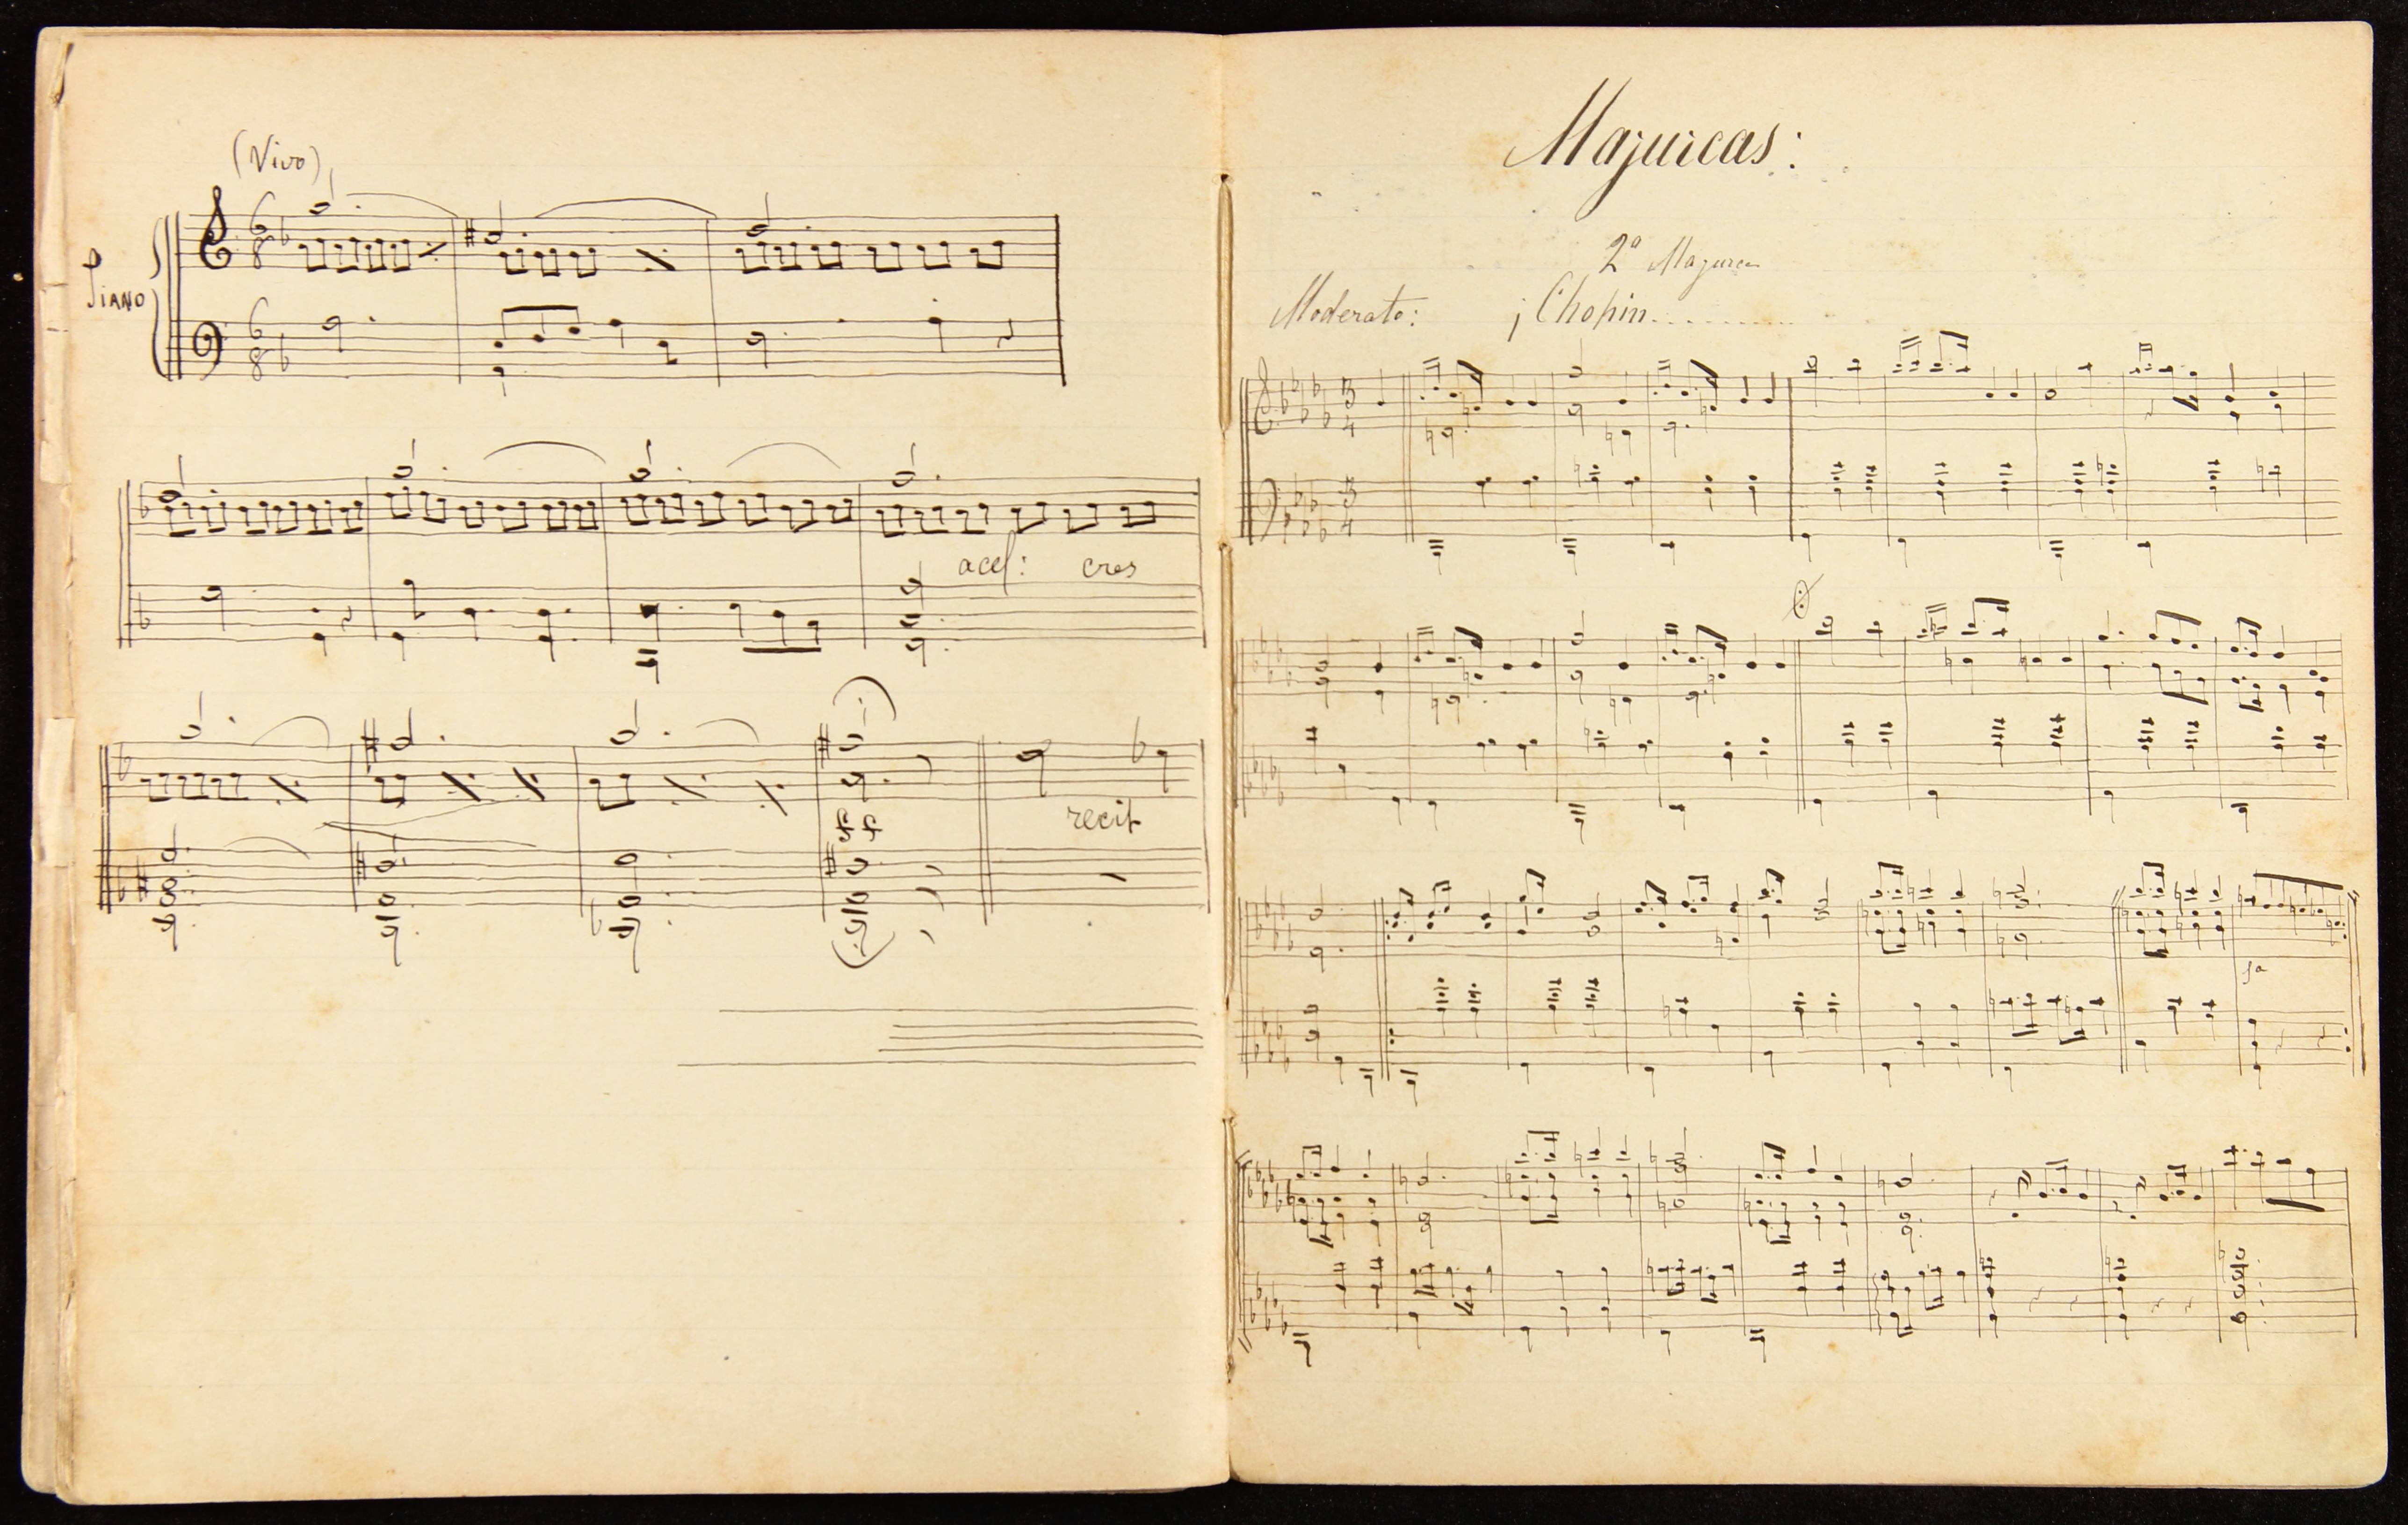 (Vivo)
PIANO
6
8
6
8
acel: cres
recit
Majurcas:
2ª Mazurca
Moderato: ¡Chopin...........
3
4
3
4